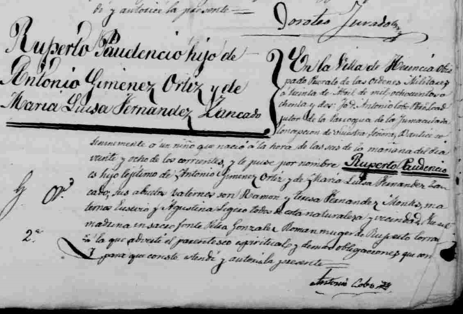 de y autorizo la presente
Doroteo Jurado
Ruperto Prudencio hijo de
Antonio Gimenez Ortiz y de
Maria Luisa Fernandez Lancado
En la Villa de Herencia Obis
pado Priorato de las Ordenes Militares
a treinta de Abril de mil ochocientos o
chenta y dos Yo D. Antonio Cobo Coad
jutor de la Parroquia de la Inmaculada
Concepcion de Nuestra Señora, Bautice so
lemnemente a un niño que nació a la hora de las seis de la mañana del dia
veinte y ocho de los corrientes, y le puse por nombre Ruperto Prudencio
es hijo legitimo de Antonio Gimenez Ortiz y de Maria Luisa Fernandez Lan
cado, sus abuelos paternos son Ramon y Luisa Fernandez Montes, ma
ternos Eusevio y Agustina todos de esta naturaleza y vecindad fue su
madrina en sacro fonte Gonzalez Roman muger de Ruperto
a la que adverti el parentesco espiritual y demas obligaciones que con
2.ª
y para que conste estendi y autorizo la presente
Antonio Cobo